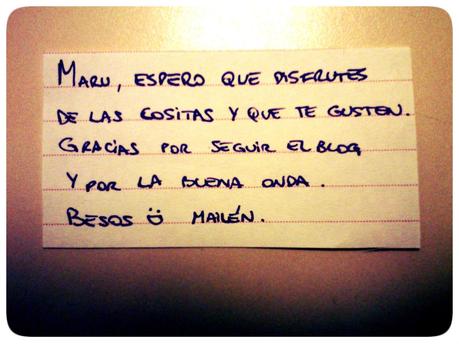 MARU, ESPERO QUE DISFRUTES
DE LAS COSITAS Y QUE TE GUSTEN.
GRACIAS POR SEGUIR EL BLOG
Y POR LA BUENA ONDA.
BESOS Ü MAILÉN.